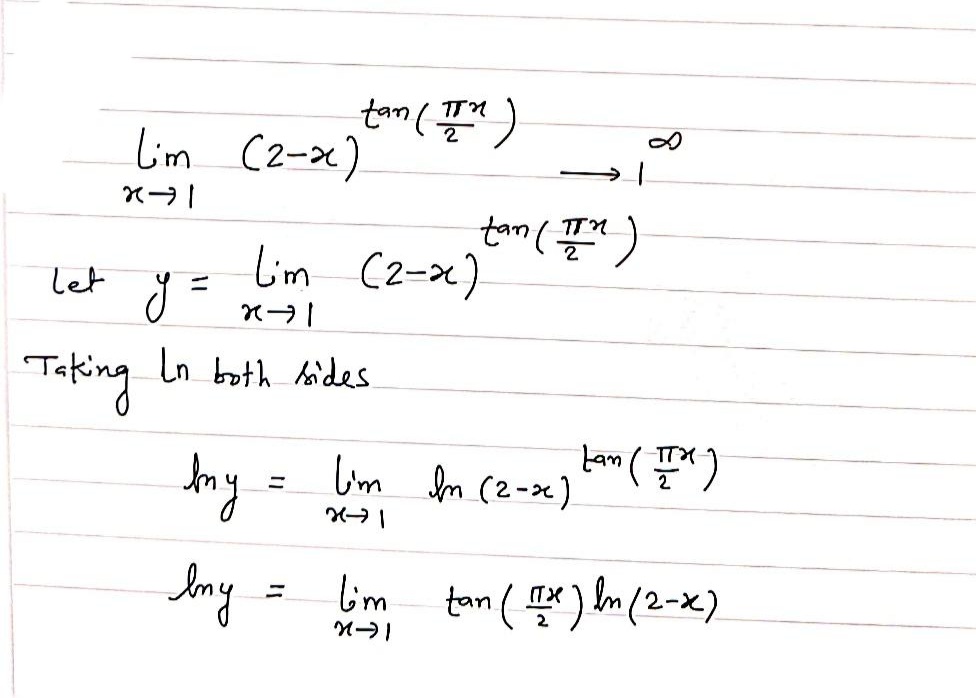 lim x→1 (2-x)^tan(πx/2) → 1^∞
Let y = lim x→1 (2-x)^tan(πx/2)
Taking ln both sides
ln y = lim x→1 ln (2-x)^tan(πx/2)
ln y = lim x→1 tan(πx/2) ln(2-x)